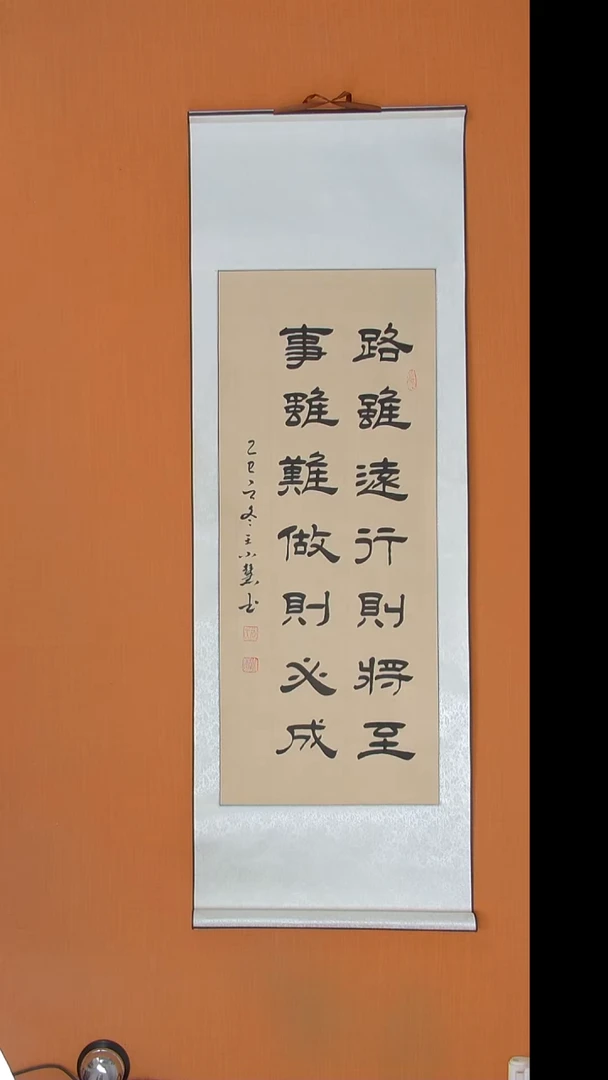 路雖遠行則將至
事雖難做則必成
乙巳之冬王小慧书